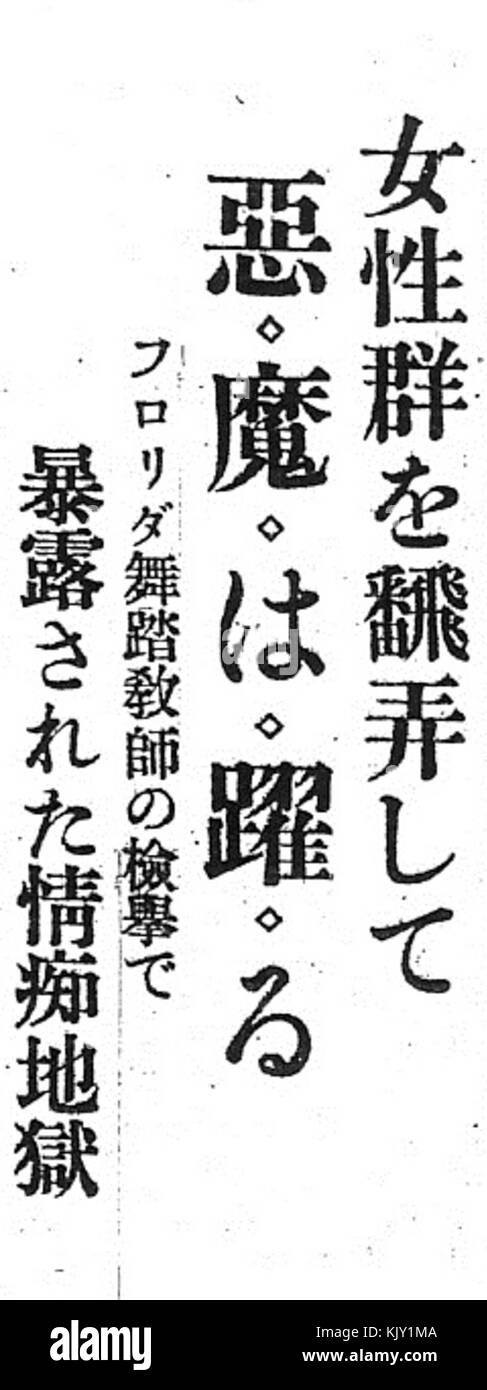 女性群を飜弄して
惡◇魔◇は◇躍◇る
フロリダ舞踏教師の檢擧で
暴露された情痴地獄
alamy
Image ID: KJY1MA
www.alamy.com